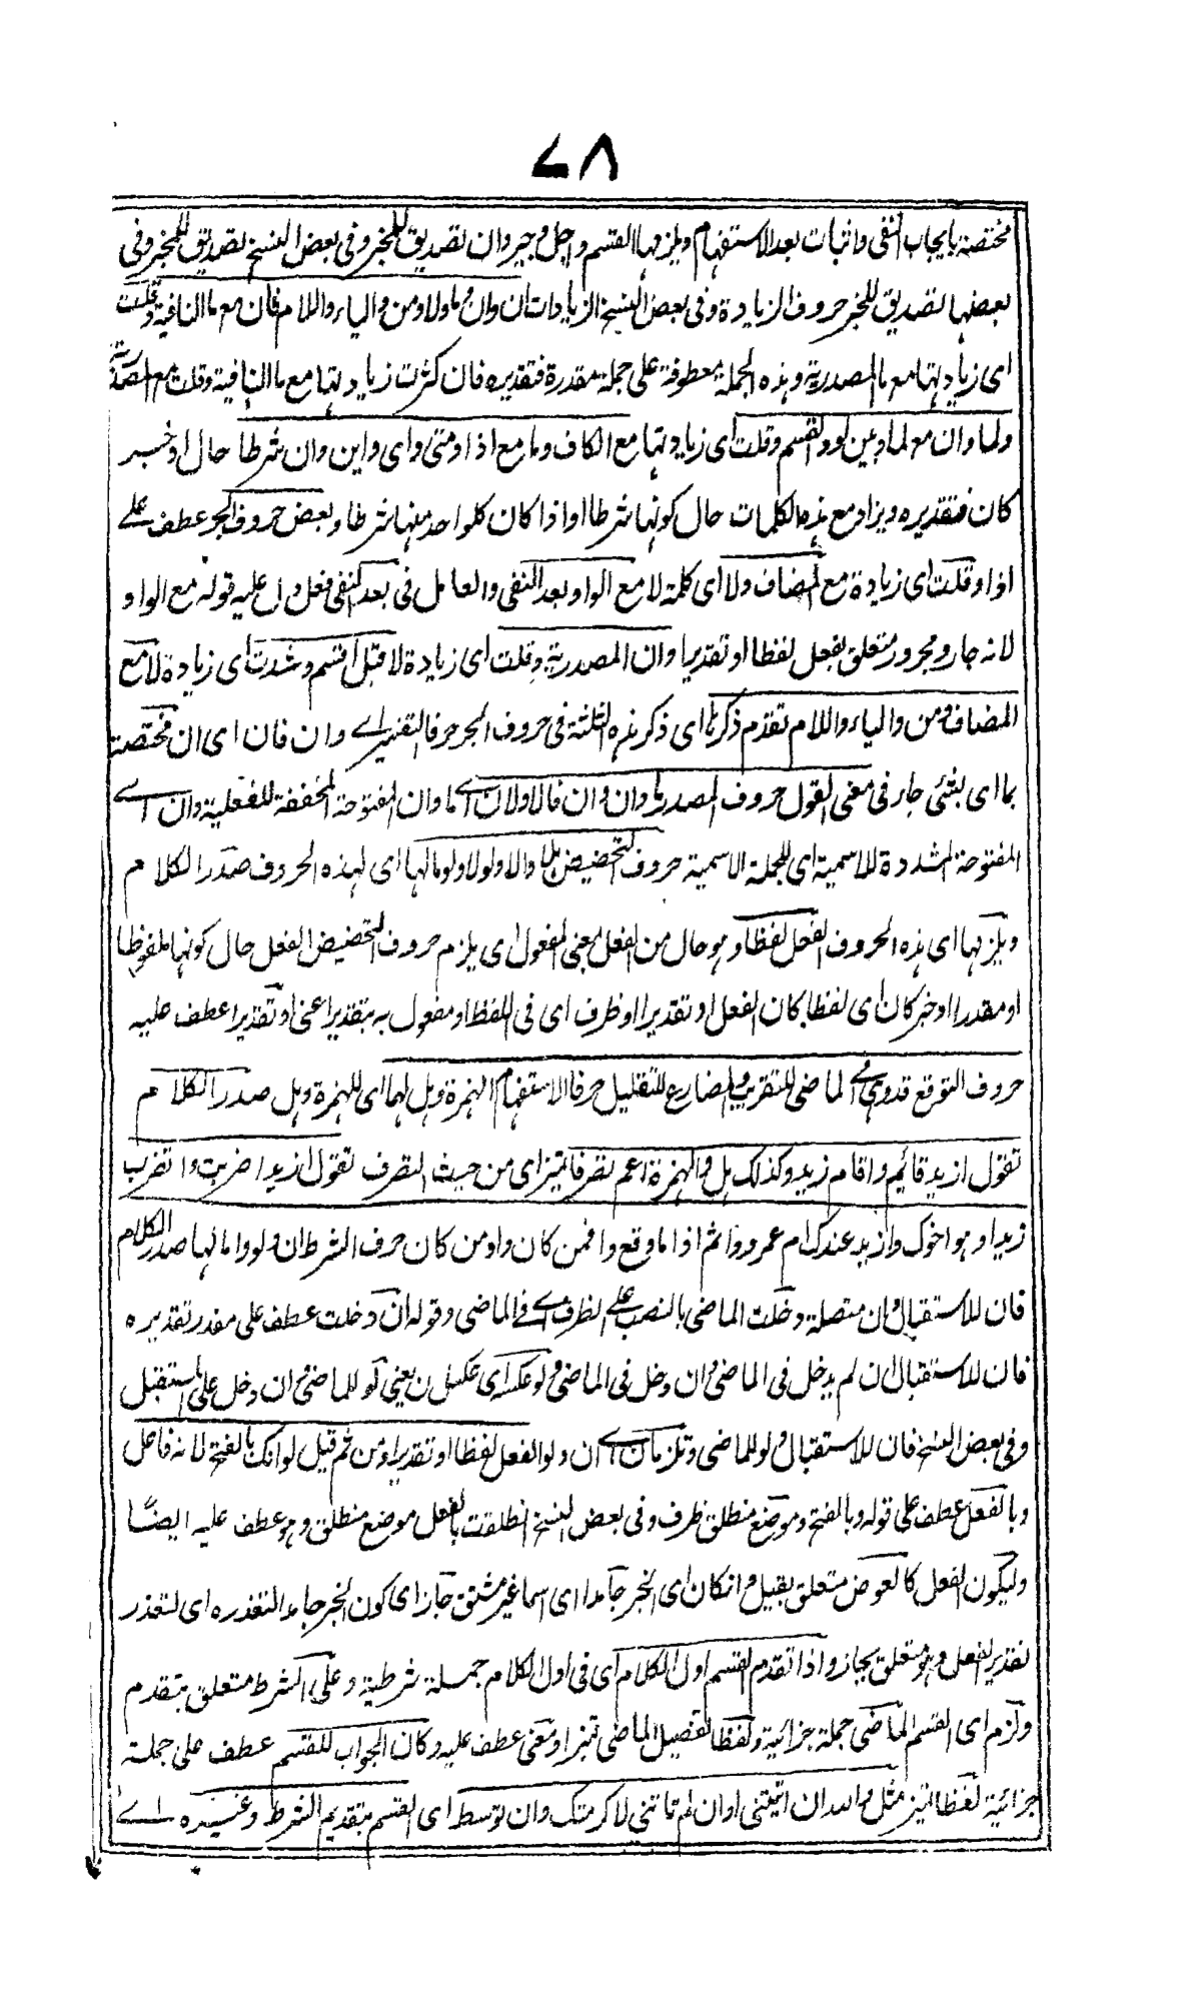 ٧٨
مختصة بايجاب النفى واثبات بعد الاستفهام ويلزمها القسم واجل وجير وان تصديق للمخبر وفى بعض النسخ تصديق للمخبر وفى
بعضها تصديق للخبر حروف الزيادة وفى بعض النسخ الزيادات ان وان وما ولا ومن والباء واللام فان مع ما النافية وقلت
اى زيادتها مع ما المصدرية وهذه الجملة معطوفة على جملة مقدرة فتقديره فان كثرت زيادتها مع ما النافية وقلت مع المصدرية
ولما وان مع لما وبين لو والقسم وقلت اى زيادتها مع الكاف وما مع اذا ومتى واى واين وان شرطا حال او خبر
كان فتقديره ويزاد مع هذه الكلمات حال كونها شرطا او اذا كان كلواحد منها شرطا وبعض حروف الجر عطف على
اذا وقلت اى زيادة مع المضاف ولا اى كلمة لا مع الواو بعد النفى والعامل فى بعد النفى فعل دل عليه قوله مع الواو
لانه جار ومجرور متعلق بفعل لفظا او تقديرا وان المصدرية وقلت اى زيادة لا قبل اقسم وشدت اى زيادة لا مع
المضاف ومن والباء واللام تقدم ذكرها اى ذكر هذه الثلثة فى حروف الجر حرفا التفسير اے وان فان اى ان مختصة
بما اى بشئ جار فى معنى القول حروف المصدر ما وان وان فالاولان اے ما وان المفتوحة المخففة للفعلية وان اے
المفتوحة المشددة للاسمية اى للجملة الاسمية حروف التحضيض هلا والا ولولا ولوما لها اى لهذه الحروف صدر الكلام
ويلزمها اى هذه الحروف الفعل لفظا وهو حال من الفعل بمعنى المفعول اى يلزم حروف التحضيض الفعل حال كونها ملفوظا
او مقدرا او خبر كان اى لفظا كان الفعل او تقديرا او ظرف اى فى اللفظ او مفعول به بتقدير اعنى او تقديرا عطف عليه
حروف التوقع قد وهى فے الماضى للتقريب والمضارع للتقليل حرفا الاستفهام الهمزة وهل لهما اى للهمزة وهل صدر الكلام
تقول ازيد قائم واقام زيد وكذلك هل والهمزة اعم تصرفا تميز اى من حيث التصرف تقول ازيدا ضربت واتضرب
زيدا وهو اخوك وازيد عندك ام عمرو واثم اذا ما وقع وافمن كان واومن كان حرف الشرط ان ولو واما لها صدر الكلام
فان للاستقبال وان متصلة دخلت الماضى بالنصب على الظرف اے فے الماضى وقوله ان دخلت عطف على مقدر تقديره
فان للاستقبال ان لم يدخل فى الماضى وان دخل فى الماضى ولو عكسه اى عكس ان يعنى لو للماضى وان دخل على المستقبل
وفى بعض النسخ فان للاستقبال ولو للماضى وتلزمان اے ان ولو الفعل لفظا او تقديرا ومن ثم قيل لو انك بالفتح لانه فاعل
وبالفعل عطف على قوله وبالفتح وموضع منطلق ظرف وفى بعض النسخ انطلقت بالفعل موضع منطلق وهو عطف عليه ايضًا
وليكون الفعل كالعوض متعلق بقيل وانكان اى الخبر جامدا اى اسما غير مشتق جاز اى كون الخبر جامدا لتعذره اى لتعذر
تقدير الفعل وهو متعلق بجاز واذا تقدم القسم اول الكلام اى فى اول الكلام جملة شرطية وعلى الشرط متعلق بتقدم
ولزم اى القسم الماضى جملة جزائية ولفظا تفصيل الماضى تميز او معنى عطف عليه وكان الجواب للقسم عطف على جملة
جزائية لفظا تميز مثل والله ان اتيتنى او ان لم تاتنى لاكرمتك وان توسط اى القسم بتقديم الشرط وغيره اے